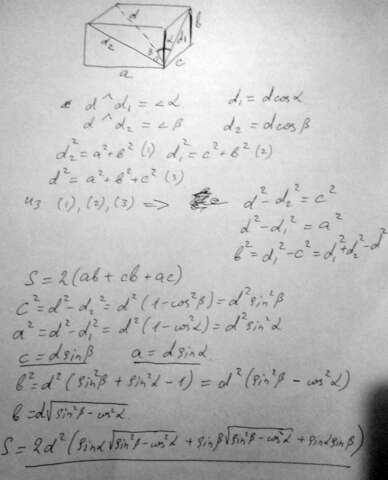 d
b
d₂
d₁
α
β
a
c
d^d₁ = ∠α d₁ = d cosα
d^d₂ = ∠β d₂ = d cosβ
d₂² = a² + b² (1) d₁² = c² + b² (2)
d² = a² + b² + c² (3)
из (1), (2), (3) => d² - d₂² = c²
d² - d₁² = a²
b² = d₁² - c² = d₁² + d₂² - d²
S = 2(ab + cb + ac)
c² = d² - d₂² = d²(1 - cos²β) = d² sin²β
a² = d² - d₁² = d²(1 - cos²α) = d² sin²α
c = d sinβ a = d sinα
b² = d²(sin²β + sin²α - 1) = d²(sin²β - cos²α)
b = d√(sin²β - cos²α)
S = 2d²(sinα√(sin²β - cos²α) + sinβ√(sin²β - cos²α) + sinα sinβ)